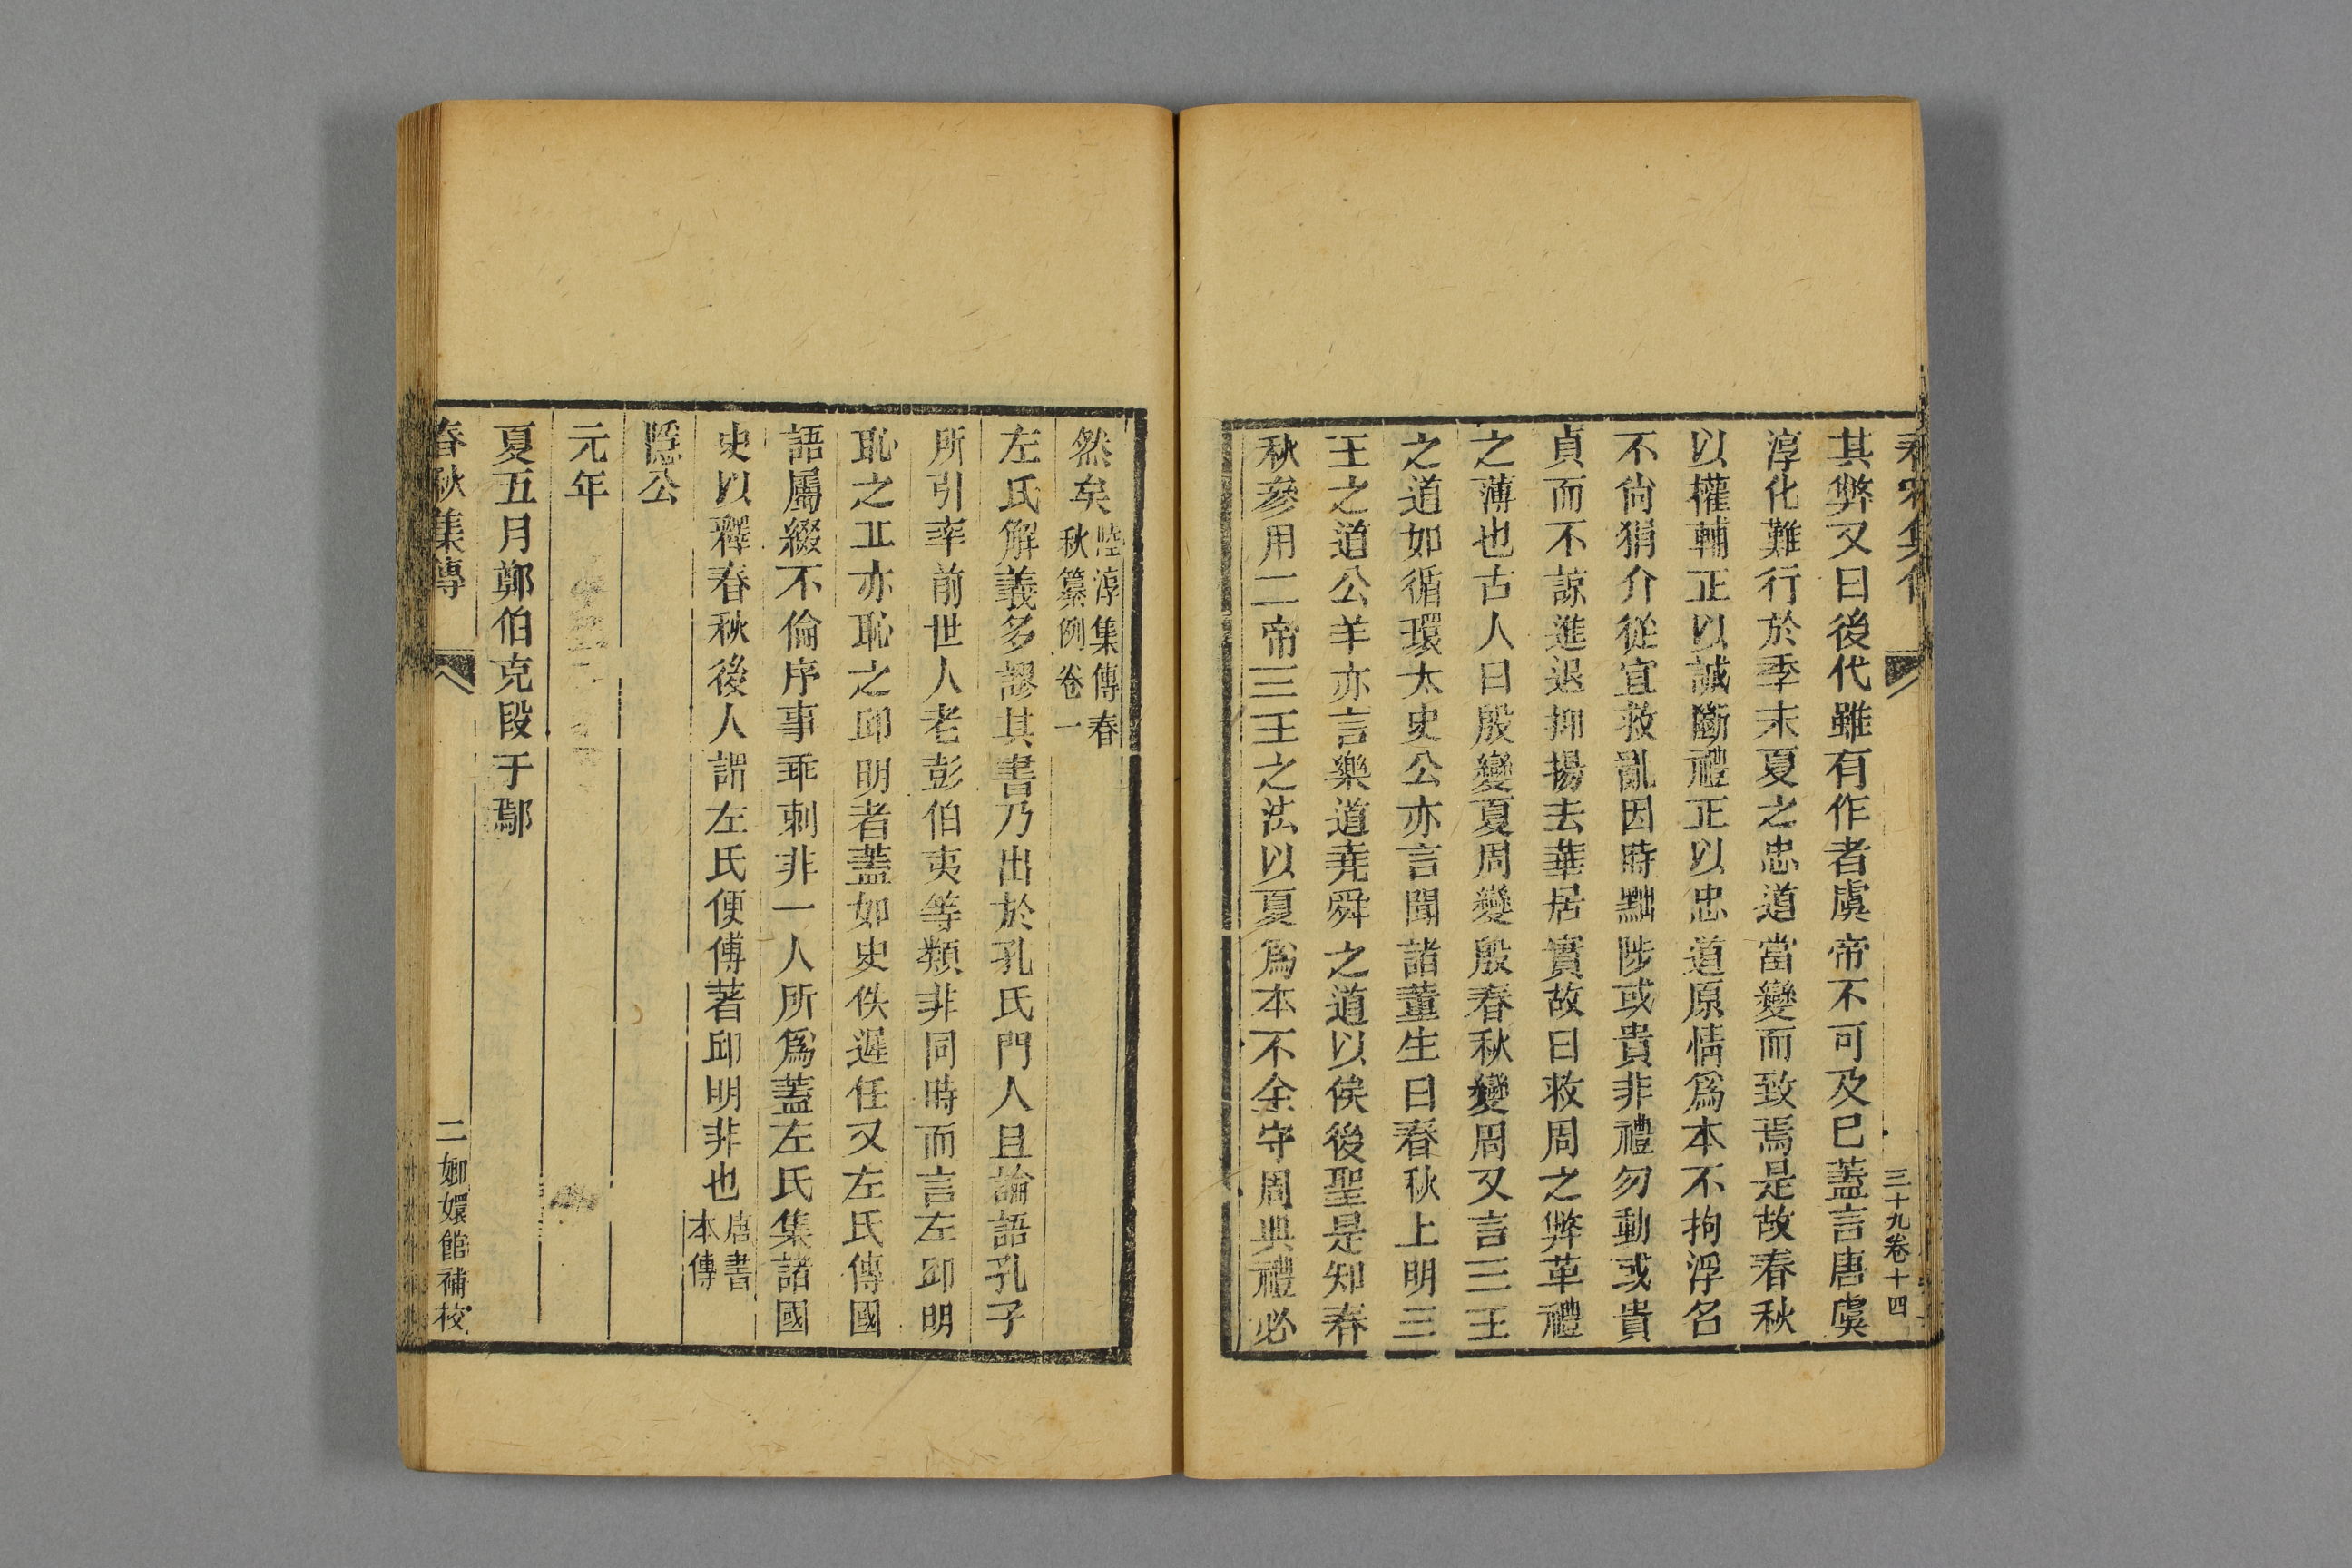 春秋集傳
三十九卷十四
其弊又曰後代雖有作者虞帝不可及已蓋言唐虞
淳化難行於季末夏之忠道當變而致焉是故春秋
以權輔正以誠斷禮正以忠道原情爲本不拘浮名
不尙狷介從宜救亂因時黜陟或貴非禮勿動或貴
貞而不諒進退抑揚去華居實故曰救周之弊革禮
之薄也古人曰殷變夏周變殷春秋變周又言三王
之道如循環太史公亦言聞諸董生曰春秋上明三
王之道公羊亦言樂道堯舜之道以俟後聖是知春
秋參用二帝三王之法以夏爲本不全守周典禮必
然矣陸淳集傳春
秋纂例卷一
左氏解義多謬其書乃出於孔氏門人且論語孔子
所引率前世人老彭伯夷等類非同時而言左邱明
恥之丘亦恥之邱明者蓋如史佚遲任又左氏傳國
語屬綴不倫序事乖剌非一人所爲蓋左氏集諸國
史以釋春秋後人謂左氏便傅著邱明非也唐書
本傳
隱公
元年
夏五月鄭伯克段于鄢
春秋集傳
二嫏嬛館補校